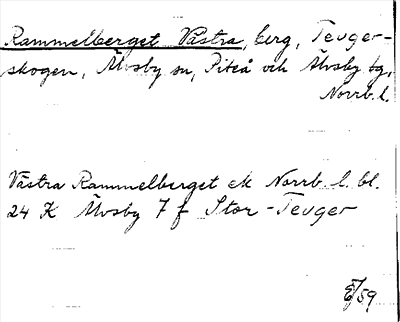 Rammelberget Västra, berg, Teuger-
skogen, Älvsby sn, Piteå och Älvsby tg,
Norrb. l.
Västra Rammelberget ek Norrb. l. bl.
24 K Älvsby 7 f Stor-Teuger
59